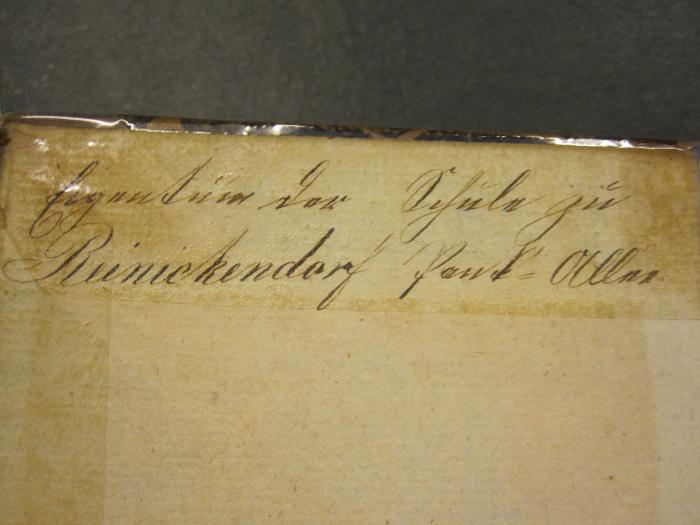 Eigentum der Schule zu
Reinickendorf Pank-Allee